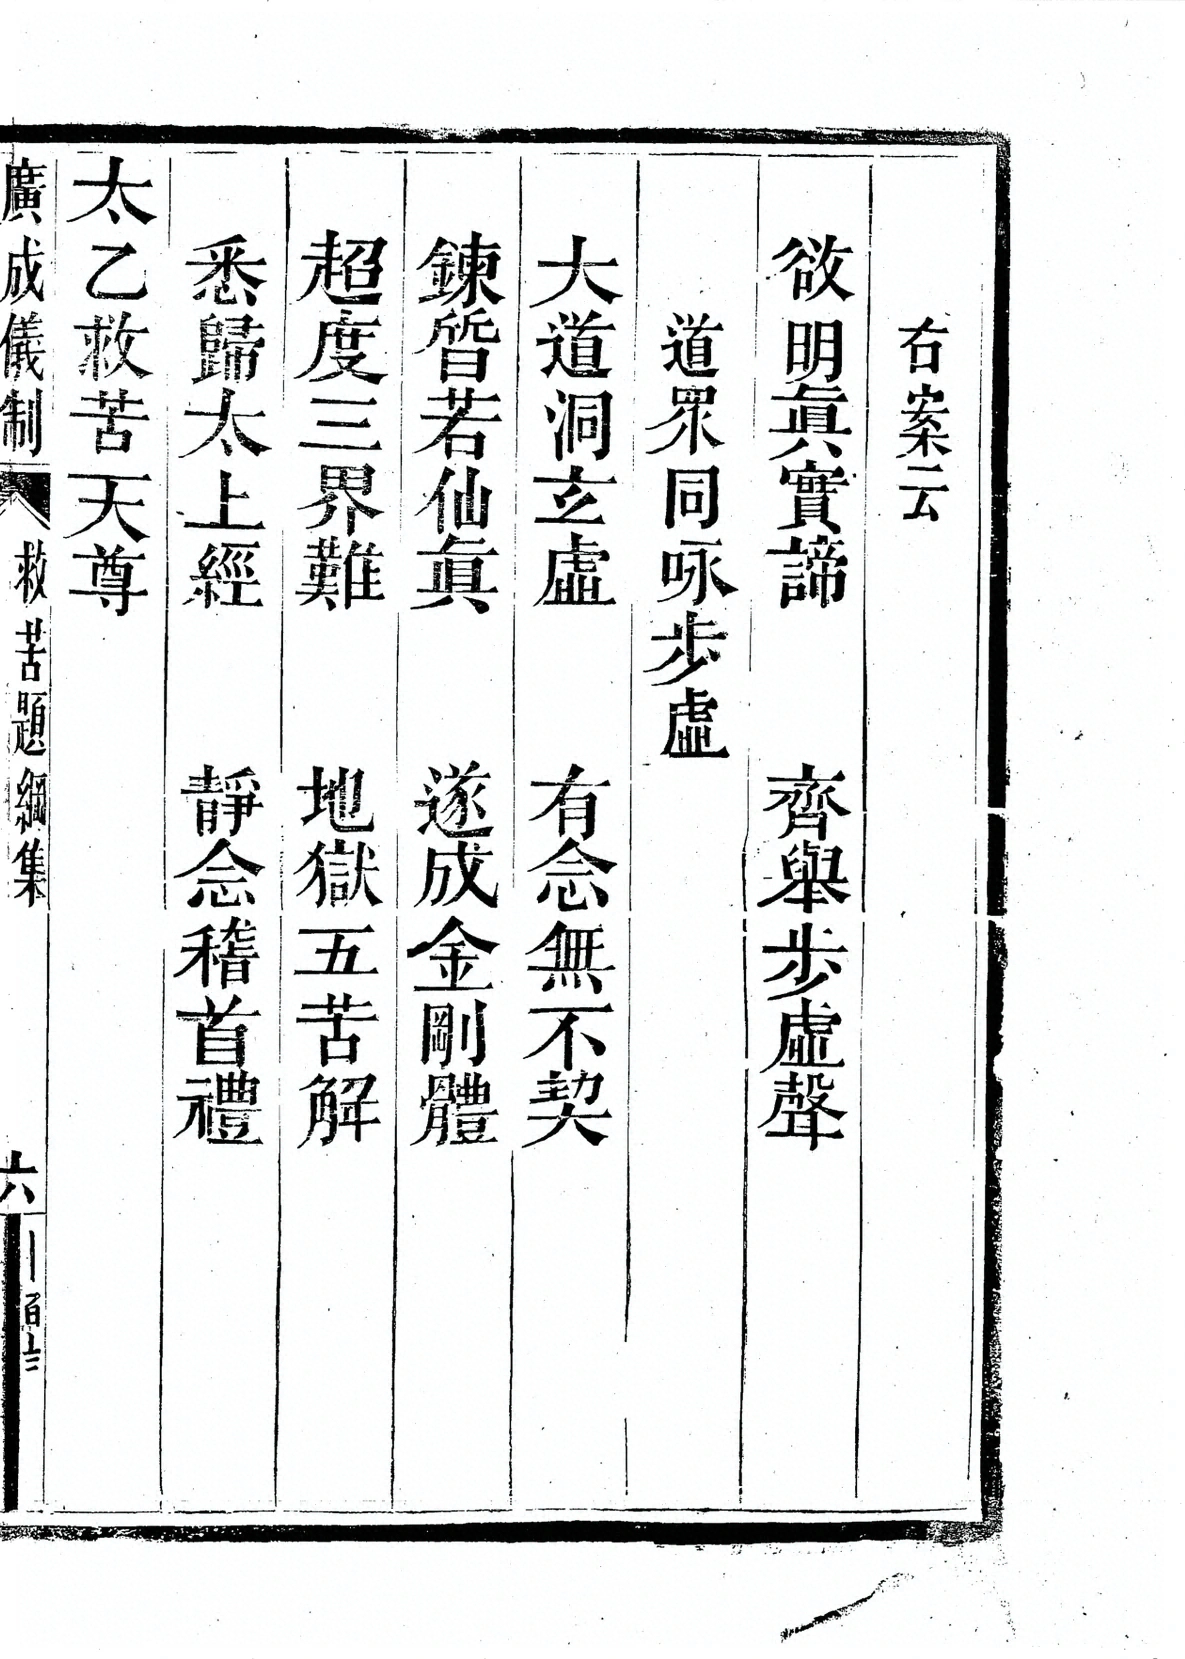 右案云
欲明眞實諦　齊舉步虛聲
道眾同咏步虛
大道洞玄虛　有念無不契
鍊質若仙眞　遂成金剛體
超度三界難　地獄五苦解
悉歸太上經　靜念稽首禮
太乙救苦天尊
廣成儀制　救苦題綱集　六